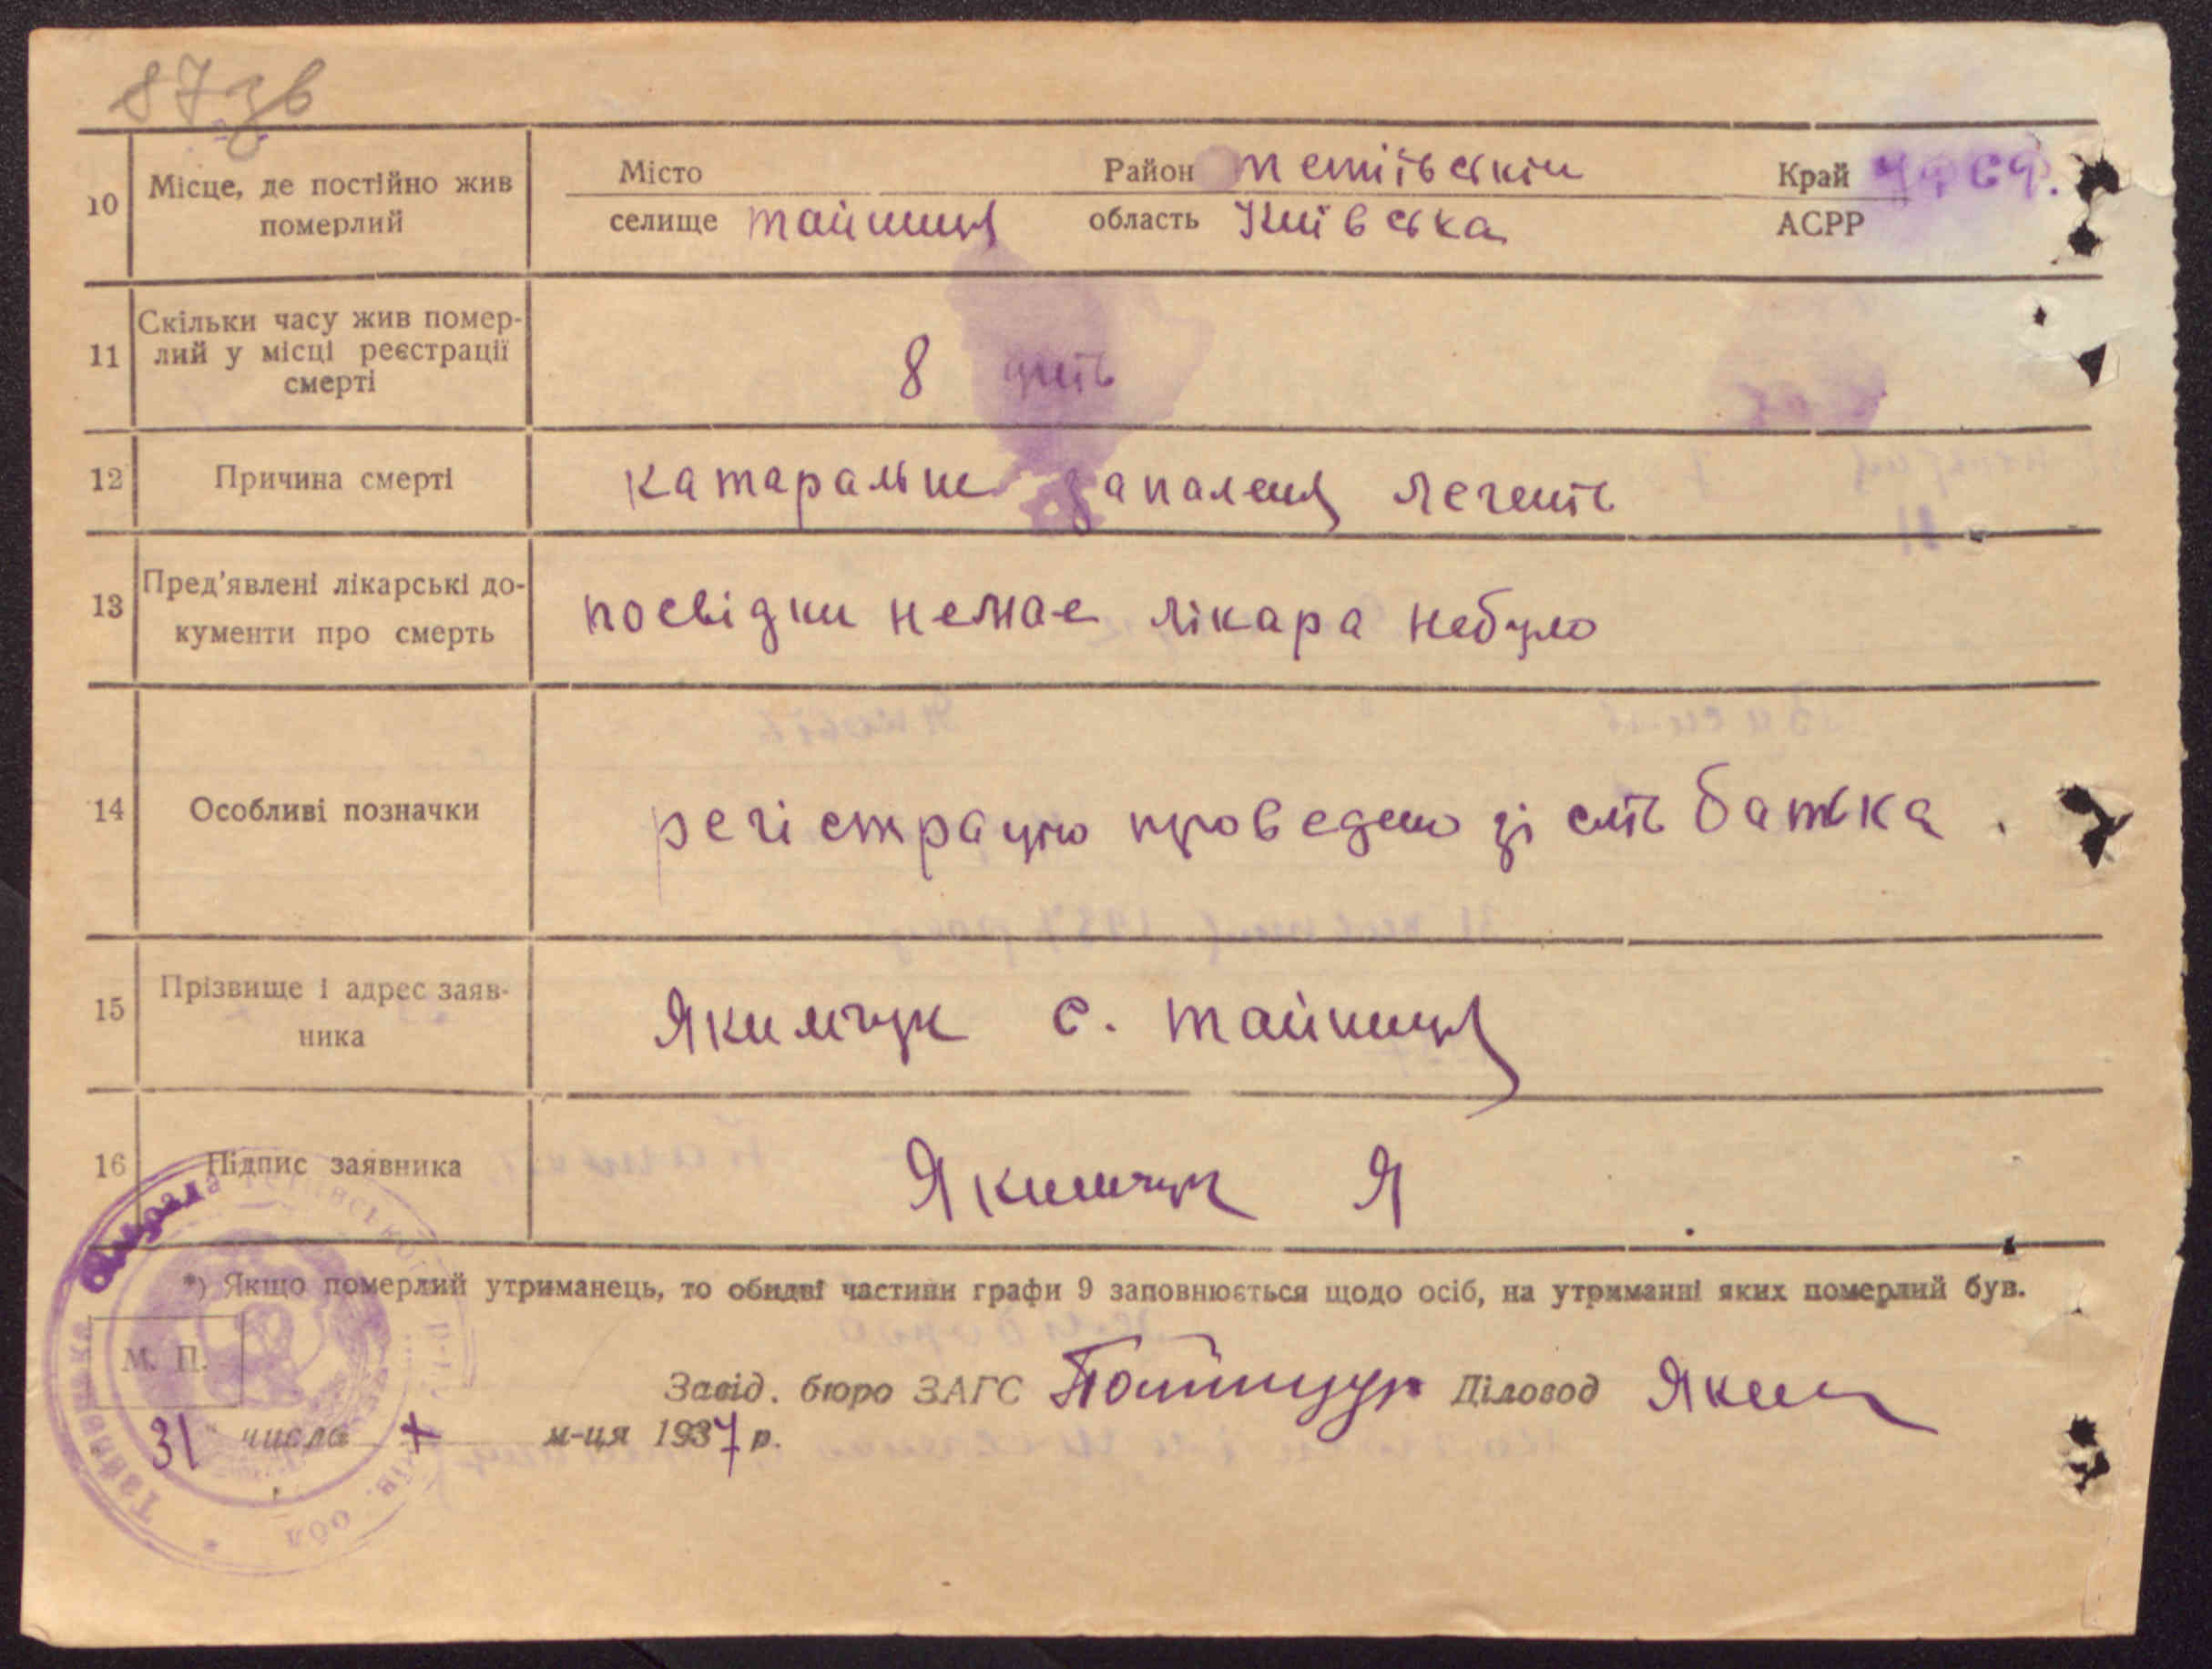 87зв
10 Місце, де постійно жив померлий Місто Район тетіївскій Край УРСР.
селище тайниця область Київська АСРР
11 Скільки часу жив помер-
лий у місці реєстрації
смерті 8 днів
12 Причина смерті катаральне запаленя легенів
13 Пред’явлені лікарські до-
кументи про смерть посвідки немає лікара небуло
14 Особливі позначки регістрацію проведено зі слів батька.
15 Прізвище і адрес заяв-
ника Якимчук с. тайниця
16 Підпис заявника Якимчук Я
*) Якщо померлий утриманець, то обидві частини графи 9 заповнюється щодо осіб, на утриманні яких померлий був.
М. П.
Завід. бюро ЗАГС Діловод Яким
31 числа X м-ця 1937 р.